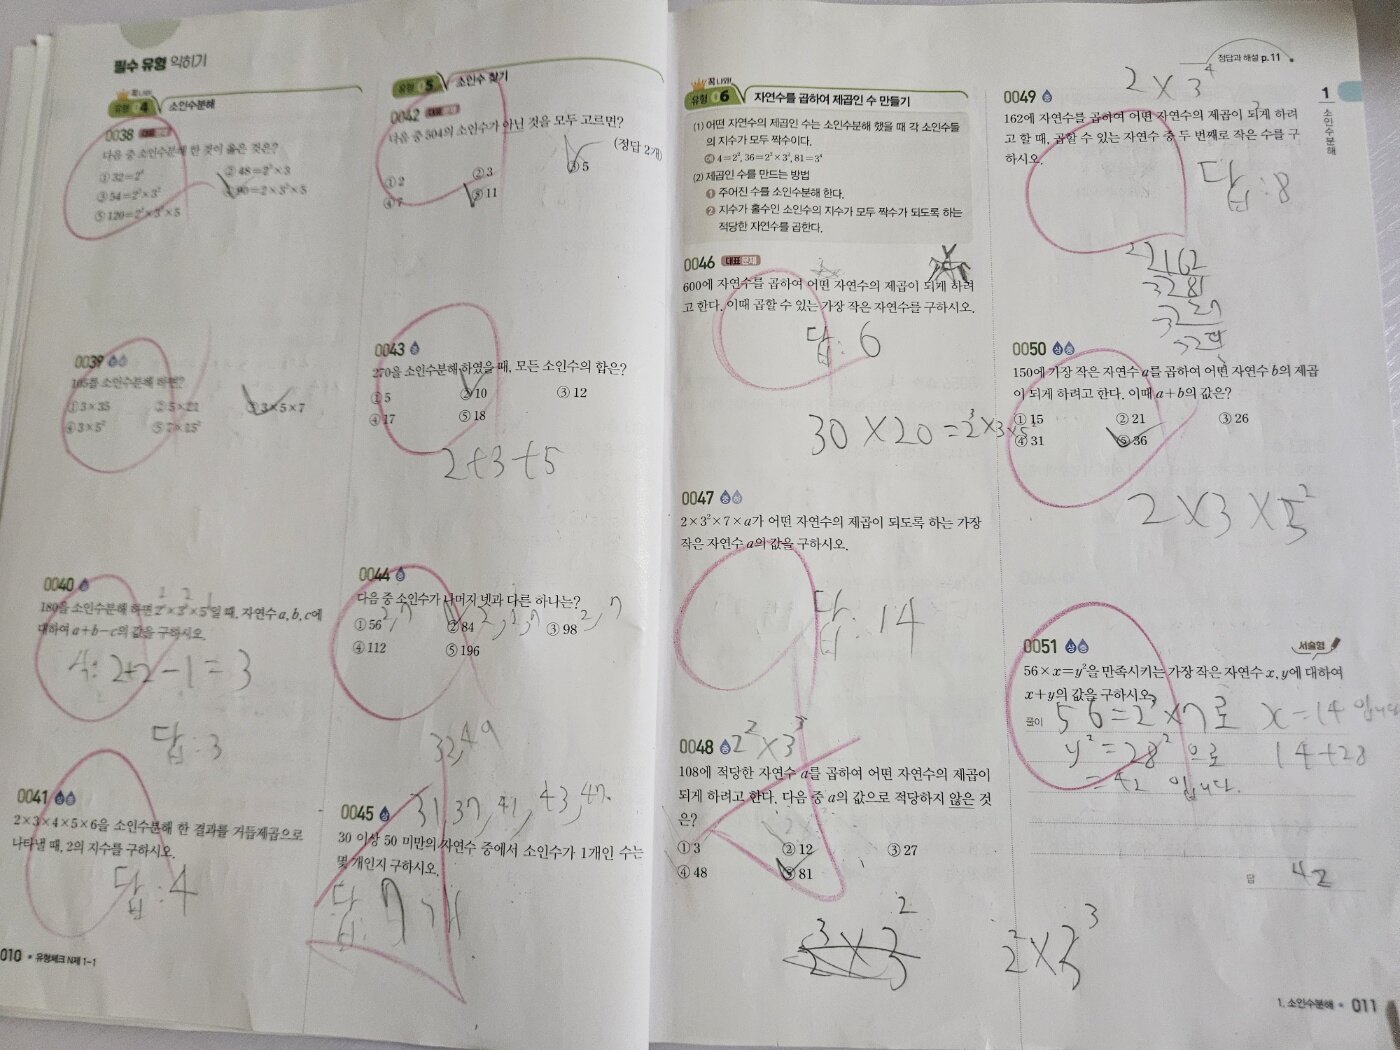 필수 유형 익히기
꼭 나와!
유형 04 소인수분해
0038 대표문제
다음 중 소인수분해 한 것이 옳은 것은?
② 48=2³×3
③ 54=2²×3²
④ 90=2×3²×5
⑤ 120=2²×3²×5
0039
105를 소인수분해 하면?
① 3×35
② 5×21
③ 3×5×7
④ 3×5²
0040
2 2 1
180을 소인수분해 하면 일 때, 자연수 a, b, c에
대하여 a+b−c의 값을 구하시오.
2+2−1=3
답:3
0041
2×3×4×5×6을 소인수분해 한 결과를 거듭제곱으로
나타낼 때, 2의 지수를 구하시오.
답:4
010 • 유형체크 N제 1-1
유형 05 소인수 찾기
0042 대표문제
다음 중 504의 소인수가 아닌 것을 모두 고르면?
(정답 2개)
① 2
② 3
③ 5
④ 7
⑤ 11
0043
270을 소인수분해 하였을 때, 모든 소인수의 합은?
① 5
② 10
③ 12
④ 17
⑤ 18
2+3+5
0044
다음 중 소인수가 나머지 넷과 다른 하나는?
① 56 2,7
② 84 2,3,7
③ 98 2,7
④ 112
⑤ 196
32,49
31,37,41,43,47
0045
30 이상 50 미만의 자연수 중에서 소인수가 1개인 수는
몇 개인지 구하시오.
답:7개
꼭 나와!
유형 06 자연수를 곱하여 제곱인 수 만들기
(1) 어떤 자연수의 제곱인 수는 소인수분해 했을 때 각 소인수들
의 지수가 모두 짝수이다.
예 4=2², 36=2²×3², 81=3⁴
(2) 제곱인 수를 만드는 방법
❶ 주어진 수를 소인수분해 한다.
❷ 지수가 홀수인 소인수의 지수가 모두 짝수가 되도록 하는
적당한 자연수를 곱한다.
0046 대표문제
600에 자연수를 곱하여 어떤 자연수의 제곱이 되게 하려
고 한다. 이때 곱할 수 있는 가장 작은 자연수를 구하시오.
답:6
30×20=2³×3×5²
0047
2×3²×7×a가 어떤 자연수의 제곱이 되도록 하는 가장
작은 자연수 a의 값을 구하시오.
답:14
0048 2²×3³
108에 적당한 자연수 a를 곱하여 어떤 자연수의 제곱이
되게 하려고 한다. 다음 중 a의 값으로 적당하지 않은 것
은?
① 3
② 12
③ 27
④ 48
⑤ 81
2³×3²
2²×3³
정답과 해설 p.11
1
소인수분해
0049
2×3⁴
162에 자연수를 곱하여 어떤 자연수의 제곱이 되게 하려
고 할 때, 곱할 수 있는 자연수 중 두 번째로 작은 수를 구
하시오.
답:8
2)162
3 81
3 27
0050
150에 가장 작은 자연수 a를 곱하여 어떤 자연수 b의 제곱
이 되게 하려고 한다. 이때 a+b의 값은?
① 15
② 21
③ 26
④ 31
⑤ 36
2×3×5²
0051 서술형
56×x=y²을 만족시키는 가장 작은 자연수 x, y에 대하여
x+y의 값을 구하시오.
풀이 56=2³×7로 x=14 입니다
y²=28²으로 14+28
=42 입니다.
답 42
1. 소인수분해 • 011